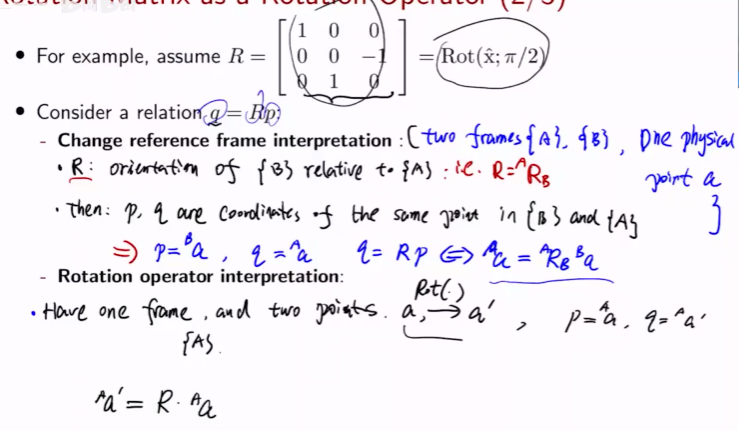 Rotation Matrix as a Rotation Operator (2/3)
• For example, assume R = [1 0 0; 0 0 −1; 0 1 0] = Rot(x̂; π/2)
• Consider a relation q = Rp:
- Change reference frame interpretation : (two frames {A}, {B}, One physical point a}
• R: orientation of {B} relative to {A} : i.e. R = ᴬR_B
• Then: p, q are coordinates of the same point in {B} and {A}
⇒ p = ᴮa , q = ᴬa q = Rp ⇔ ᴬa = ᴬR_B ᴮa
- Rotation operator interpretation:
Rot(·)
• Have one frame, and two points. a, → a' , p = ᴬa, q = ᴬa'
{A}.
ᴬa' = R · ᴬa